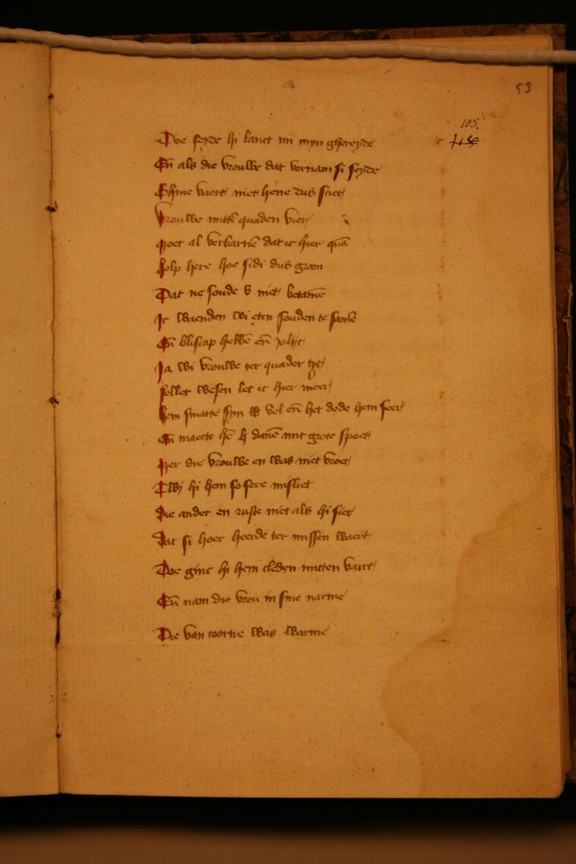 53
105
Doe seyde hi lanct mi myn ghereyde
Eñ als die vrouwe dat vernam si seyde
Ghine vaert niet hene dus siet
Vrouwe mitt quaden viet
Moet al verbarnē dat ic hier quā
Holp here hoe sidi dus gram
Dat ne soude v niet betamē
Ic waenden wi eten souden te samē
Eñ bliscap hebbē eñ jolijt
Ja wi vrouwe ter quader tijt
Sellet wesen let ic hier meer
Hem smatte sijn vel eñ het dede hem seer
Eñ maecte hē danē mit groter spoet
Mer die vrouwe en was niet vroet
Twi hi hem so sere misliet
Die ander en ruste niet als hi siet
Dat si hoer keerde ter missen waert
Doe ginc hi hem cleden mitten vaert
Eñ nam die vrou in sine narme
Die van toorne was warme